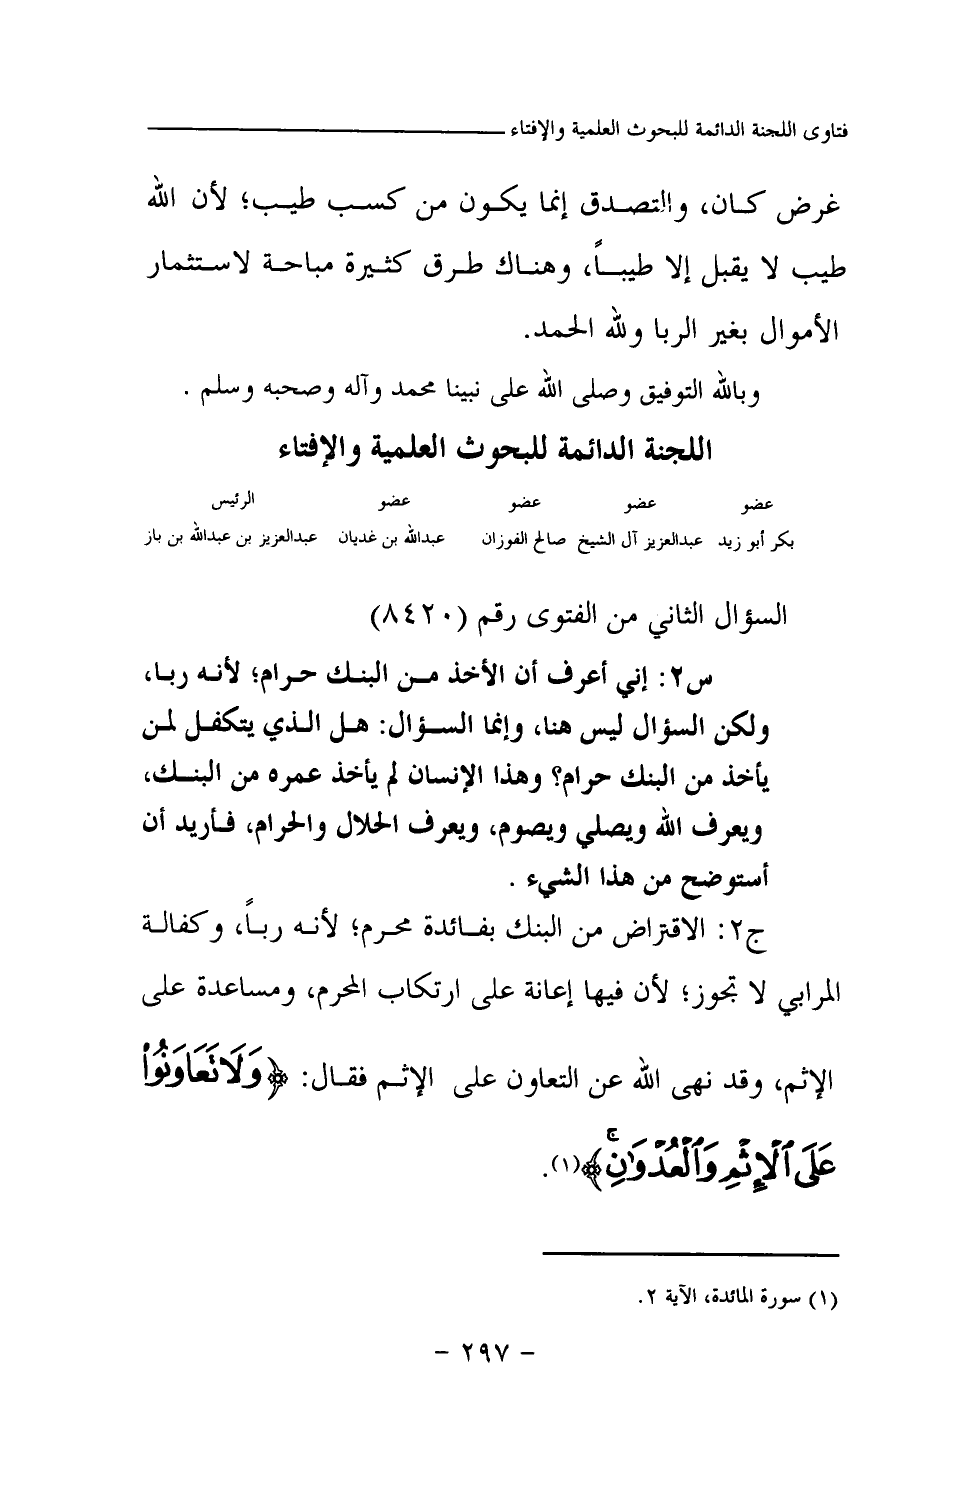 فتاوى اللجنة الدائمة للبحوث العلمية والإفتاء
غرض كان، والتصدق إنما يكون من كسب طيب؛ لأن الله
طيب لا يقبل إلا طيباً، وهناك طرق كثيرة مباحة لاستثمار
الأموال بغير الربا ولله الحمد.
وبالله التوفيق وصلى الله على نبينا محمد وآله وصحبه وسلم .
اللجنة الدائمة للبحوث العلمية والإفتاء
عضو عضو عضو عضو الرئيس
بكر أبو زيد عبدالعزيز آل الشيخ صالح الفوزان عبدالله بن غديان عبدالعزيز بن عبدالله بن باز
السؤال الثاني من الفتوى رقم (٨٤٢٠)
س٢: إني أعرف أن الأخذ من البنك حرام؛ لأنه ربا،
ولكن السؤال ليس هنا، وإنما السؤال: هل الذي يتكفل لمن
يأخذ من البنك حرام؟ وهذا الإنسان لم يأخذ عمره من البنك،
ويعرف الله ويصلي ويصوم، ويعرف الحلال والحرام، فأريد أن
أستوضح من هذا الشيء .
ج٢: الاقتراض من البنك بفائدة محرم؛ لأنه رباً، وكفالة
المرابي لا تجوز؛ لأن فيها إعانة على ارتكاب المحرم، ومساعدة على
الإثم، وقد نهى الله عن التعاون على الإثم فقال: ﴿وَلَا تَعَاوَنُوا۟
عَلَى ٱلْإِثْمِ وَٱلْعُدْوَٰنِ ۚ﴾(١).
(١) سورة المائدة، الآية ٢.
- ٢٩٧ -